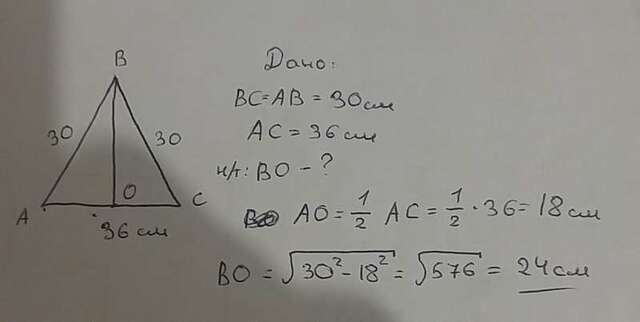 B
30
30
A
O
C
36 см
Дано:
BC=AB = 30см
AC = 36см
н/т: BO - ?
AO = 1/2 AC = 1/2 · 36 = 18 см
BO = √30² - 18² = √576 = 24 см